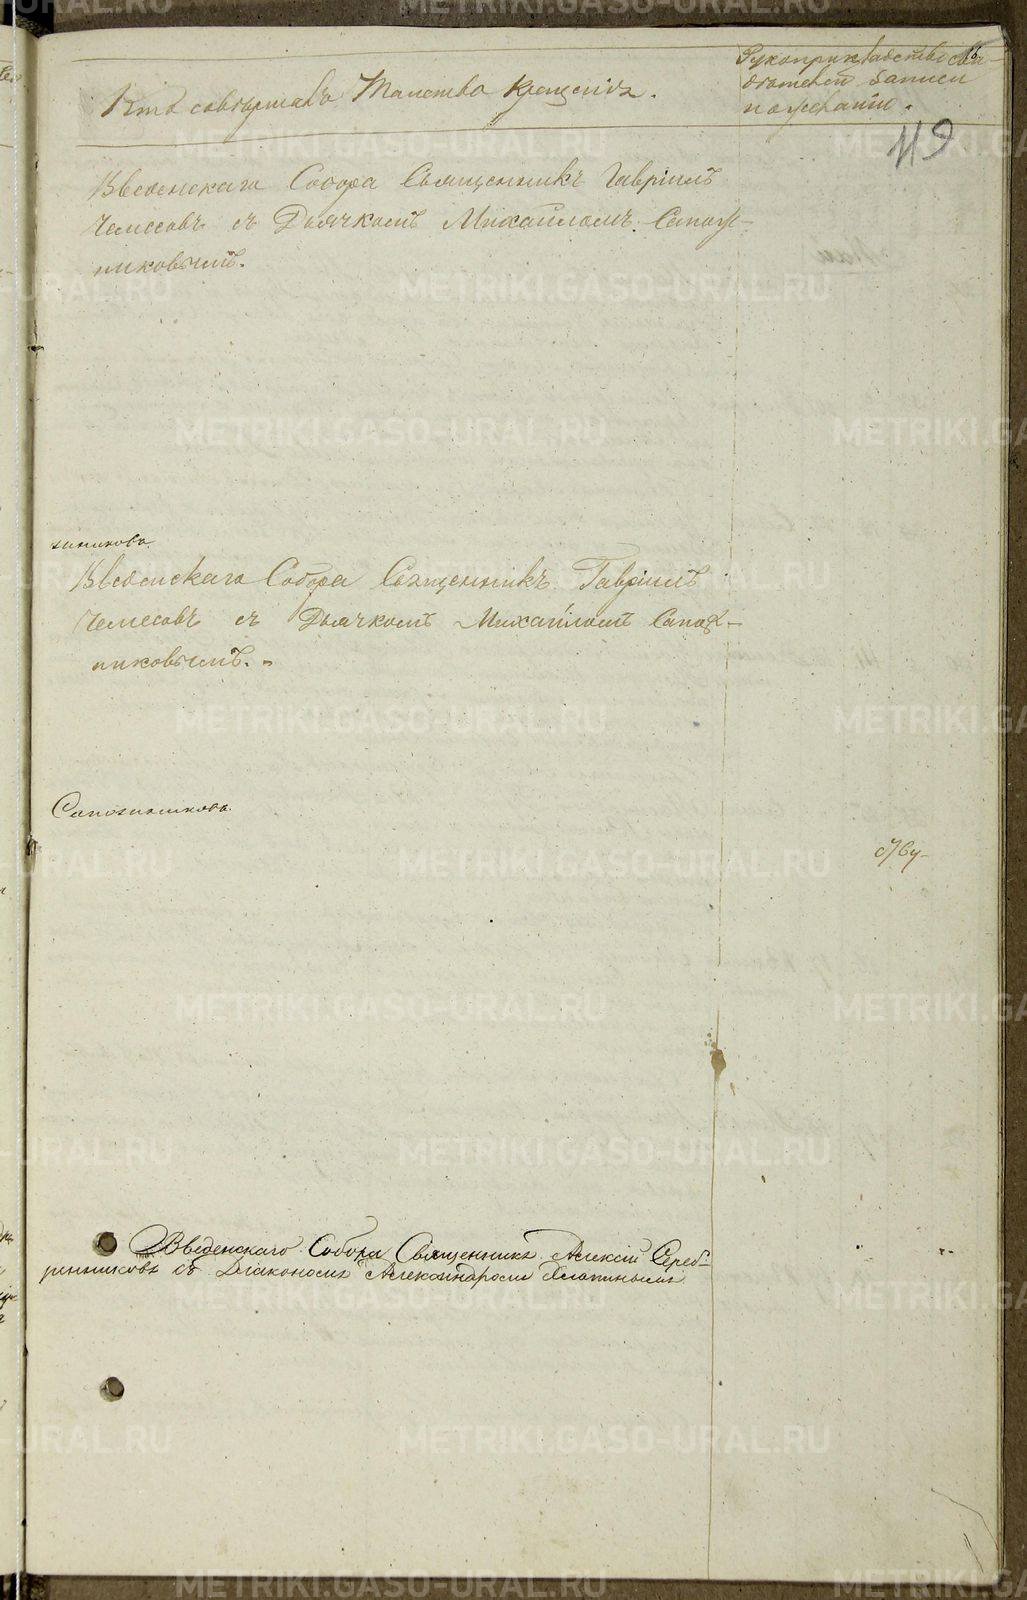 Кто совершалъ Таинство крещенія.
Рукоприкладство сви-
дѣтелей записи
по желанію.
119
Введенскаго Собора Священникъ Гавріилъ
Чемесовъ съ Дьячкомъ Михайломъ Сапож-
никовымъ.
Введенскаго Собора Священникъ Гавріилъ
Чемесовъ съ Дьячкомъ Михайломъ Сапож-
никовымъ.
Сапожникова.
Введенскаго Собора Священникъ Алексій Сереб-
ренниковъ съ Діакономъ Александромъ
METRIKI.GASO-URAL.RU